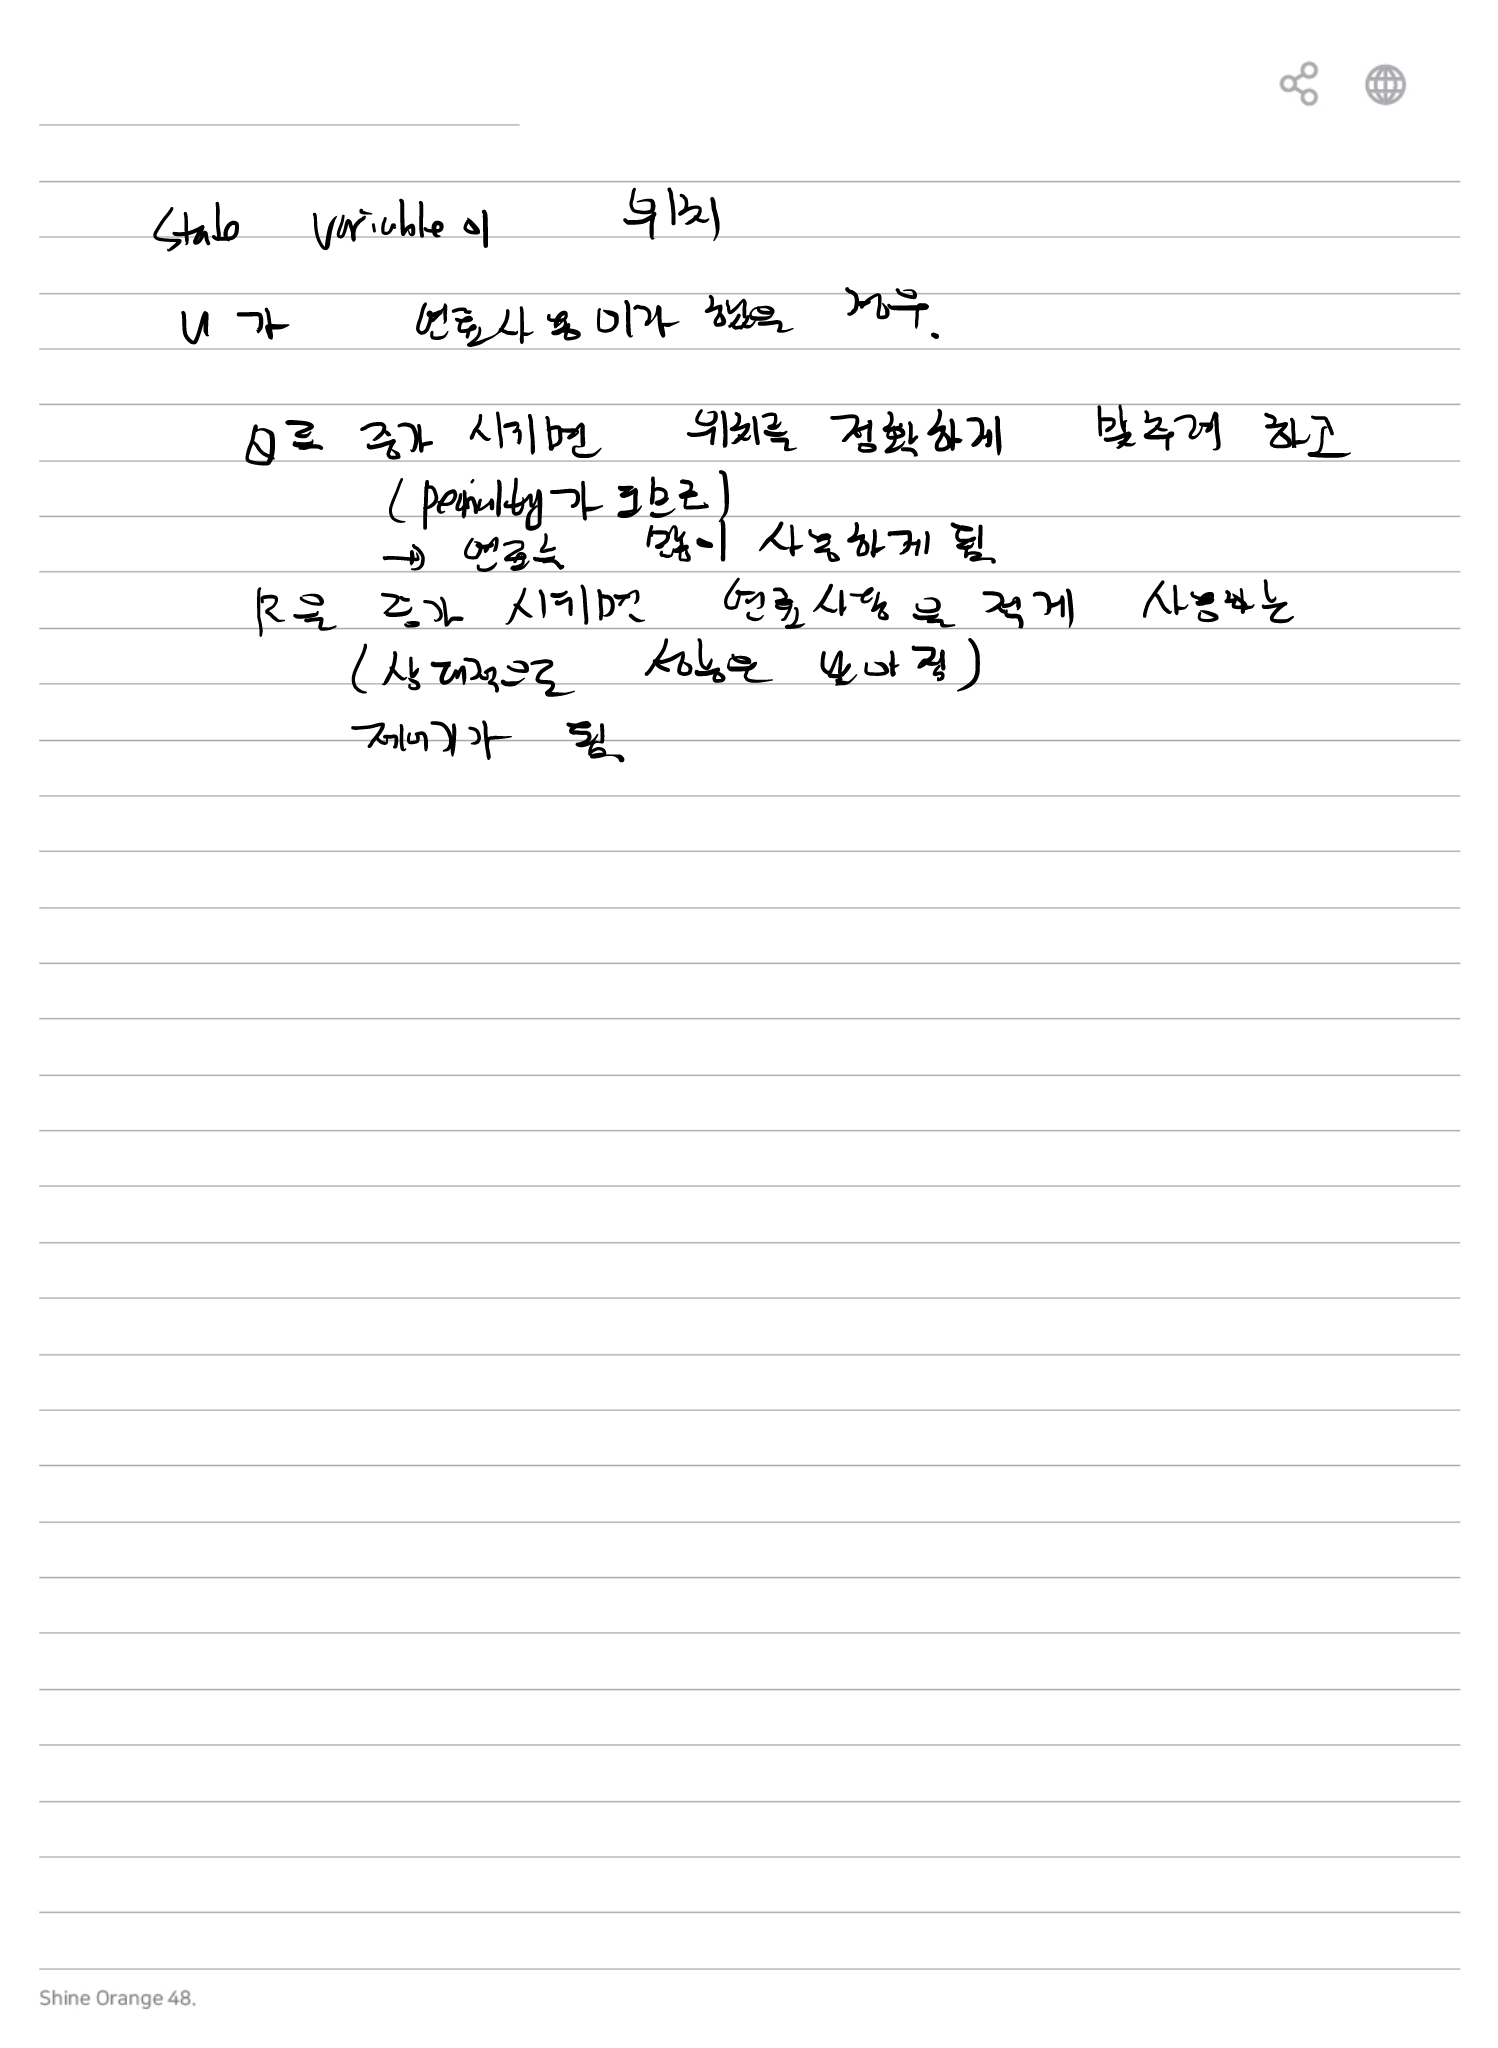 State variable이 위치
U가 연료사용이라 했을 경우.
Q로 증가 시키면 위치를 정확하게 맞추려 하고
(penulty가 크므로)
→ 연료는 많이 사용하게 됨
R을 증가 시키면 연료사용을 적게 사용하는
(상대적으로 성능은)
제어기가 됨
Shine Orange 48.